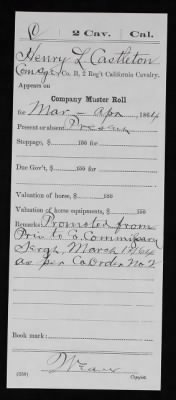 C | 2 Cav. | Cal.
Henry L Castleton
Com Sgt, Co. B, 2 Reg't California Cavalry.
Appears on
Company Muster Roll
for Mar - Apr, 1864
Present or absent Present
Stoppage, $ 100 for
Due Gov't, $ 100 for
Valuation of horse, $ 100
Valuation of horse equipments, $ 100
Remarks: Promoted from
Priv to Co. Commissary
Sergt, March 1, 1864
as per Co Order No 2
Book mark:
(358) Copyist.